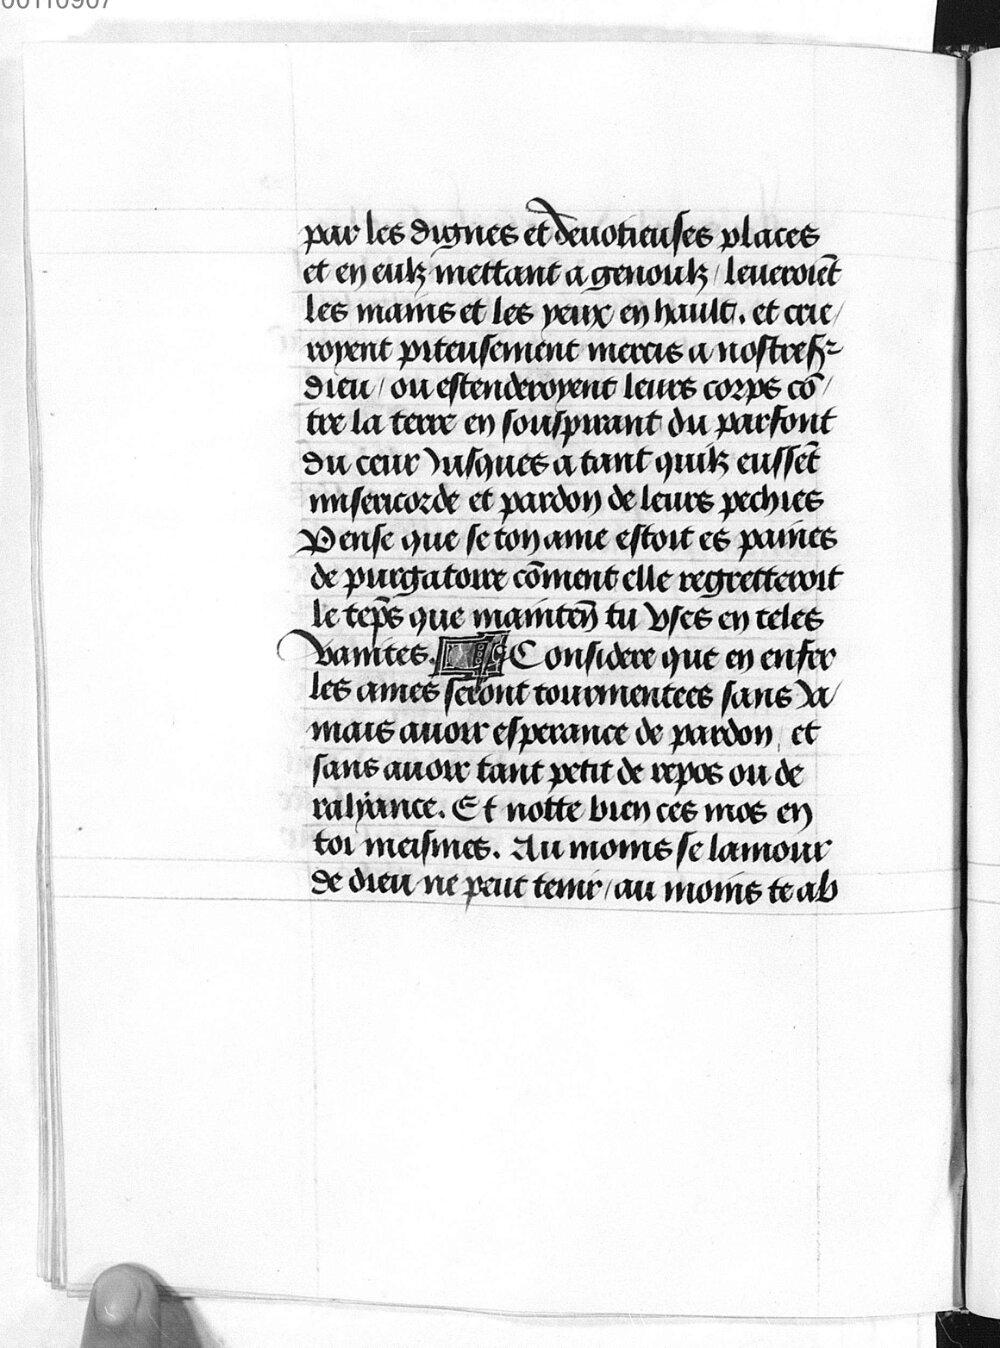 00110907
par les dignes et deuotieuses places
et en eulz mettant a genoulz / leueroiēt
les mains et les yeux en hault. et crie/
royent piteusement mercis a nostre sr
dieu / ou estenderoyent leurs corps cō/
tre la terre en souspirant du parfont
du ceur Jusques a tant quilz eussēt
misericorde et pardon de leurs pechies
Pense que se ton ame estoit es paines
de purgatoire cōment elle regretteroit
le tēps que mainten̄ tu vses en teles
vanites. Considere que en enfer
les ames seront tourmentees sans Ja/
mais auoir esperance de pardon / et
sans auoir tant petit de repos ou de
raliance. Et notte bien ces mos en
toi meismes. Au moins se lamour
de dieu ne peut tenir / au moins te ab